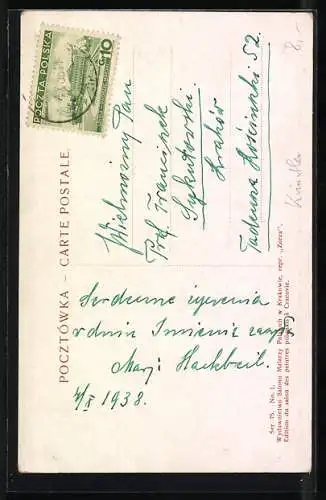 POCZTA POLSKA
GR 10
POCZTÓWKA – CARTE POSTALE.
Wielmożny Pan
Prof. Franciszek
Kraków
Tadeusza Kościuszki 52.
Serdeczne życzenia
w dniu Imienin
4/X 1938.
8,-
Künstler
Ser. 75. No. 1.
Wydawnictwo Salonu Malarzy Polskich w Krakowie, repr. „Zorza".
Edition du salon des peintres polonais à Cracovie.